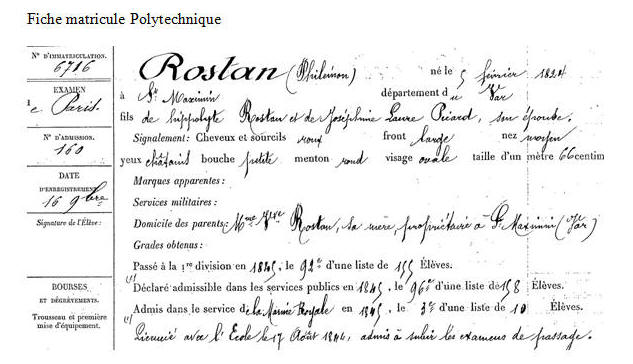 Fiche matricule Polytechnique
N° D'IMMATRICULATION.
6716
EXAMEN
1e Paris.
N° D'ADMISSION.
160
DATE
D'ENREGISTREMENT
16 9bre
Signature de l'Élève :
BOURSES
ET DÉGRÈVEMENTS.
Trousseau et première
mise d'équipement.
Rostan (Philémon) né le 5 février 1824
à St Maximin département du Var
fils de hippolyte Rostan et de Joséphine Laure Picard, son épouse.
Signalement : Cheveux et sourcils roux front large nez moyen
yeux châtains bouche petite menton rond visage ovale taille d'un mètre 66 centim
Marques apparentes :
Services militaires :
Domicile des parents : Mme Vve Rostan, sa mère, propriétaire à St Maximin (Var)
Grades obtenus :
Passé à la 1re division en 1845, le 92e d'une liste de 155 Élèves.
(1) Déclaré admissible dans les services publics en 1845, le 96e d'une liste de 158 Élèves.
Admis dans le service de la Marine Royale en 1845, le 3e d'une liste de 10 Élèves.
(1) Licencié avec l'Ecole le 17 Août 1844, admis à subir les examens de passage.